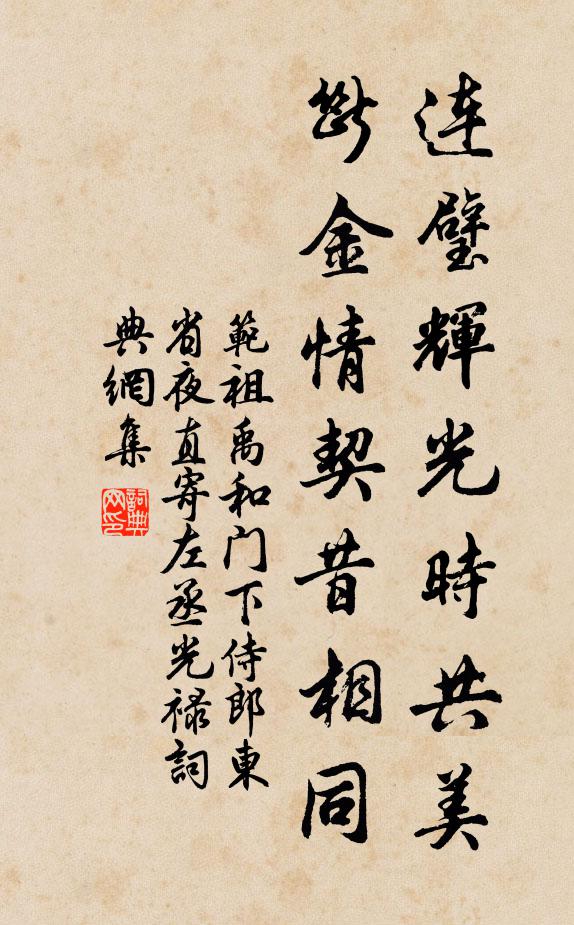 连璧輝光時共美
斷金情契昔相同
範祖禹和门下侍郎東
省夜直寄左丞光禄詞
典網集
詞典
网印